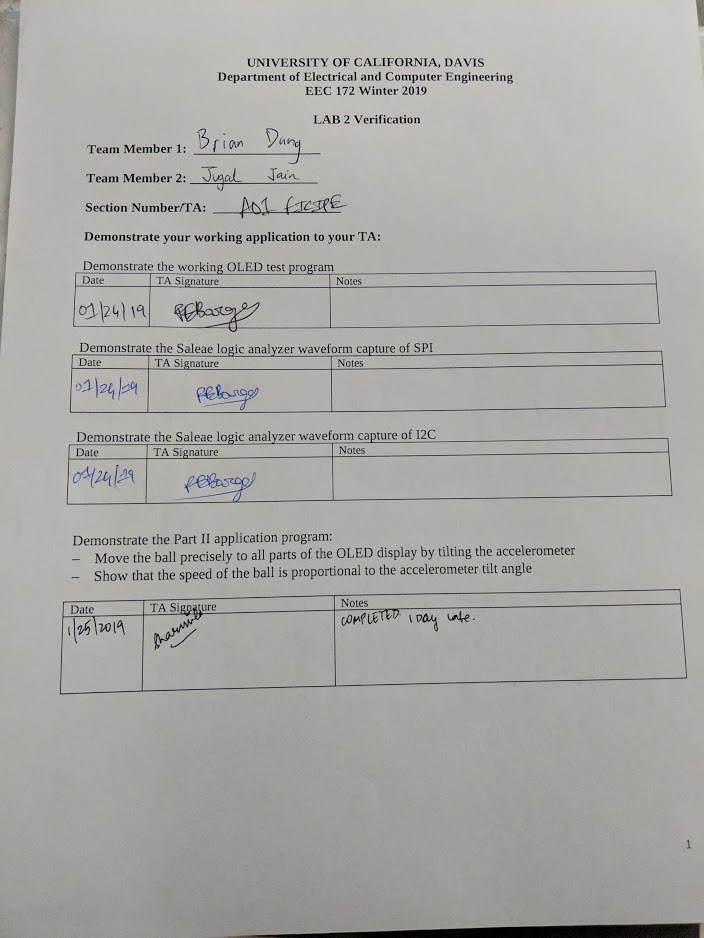 UNIVERSITY OF CALIFORNIA, DAVIS
Department of Electrical and Computer Engineering
EEC 172 Winter 2019
LAB 2 Verification
Team Member 1: Brian Dang
Team Member 2: Jugal Jain
Section Number/TA: A01
Demonstrate your working application to your TA:
Demonstrate the working OLED test program
Date TA Signature Notes
01/24/19
Demonstrate the Saleae logic analyzer waveform capture of SPI
Date TA Signature Notes
01/24/19
Demonstrate the Saleae logic analyzer waveform capture of I2C
Date TA Signature Notes
01/24/19
Demonstrate the Part II application program:
– Move the ball precisely to all parts of the OLED display by tilting the accelerometer
– Show that the speed of the ball is proportional to the accelerometer tilt angle
Date TA Signature Notes
1/25/2019 COMPLETED. 1 Day late.
1